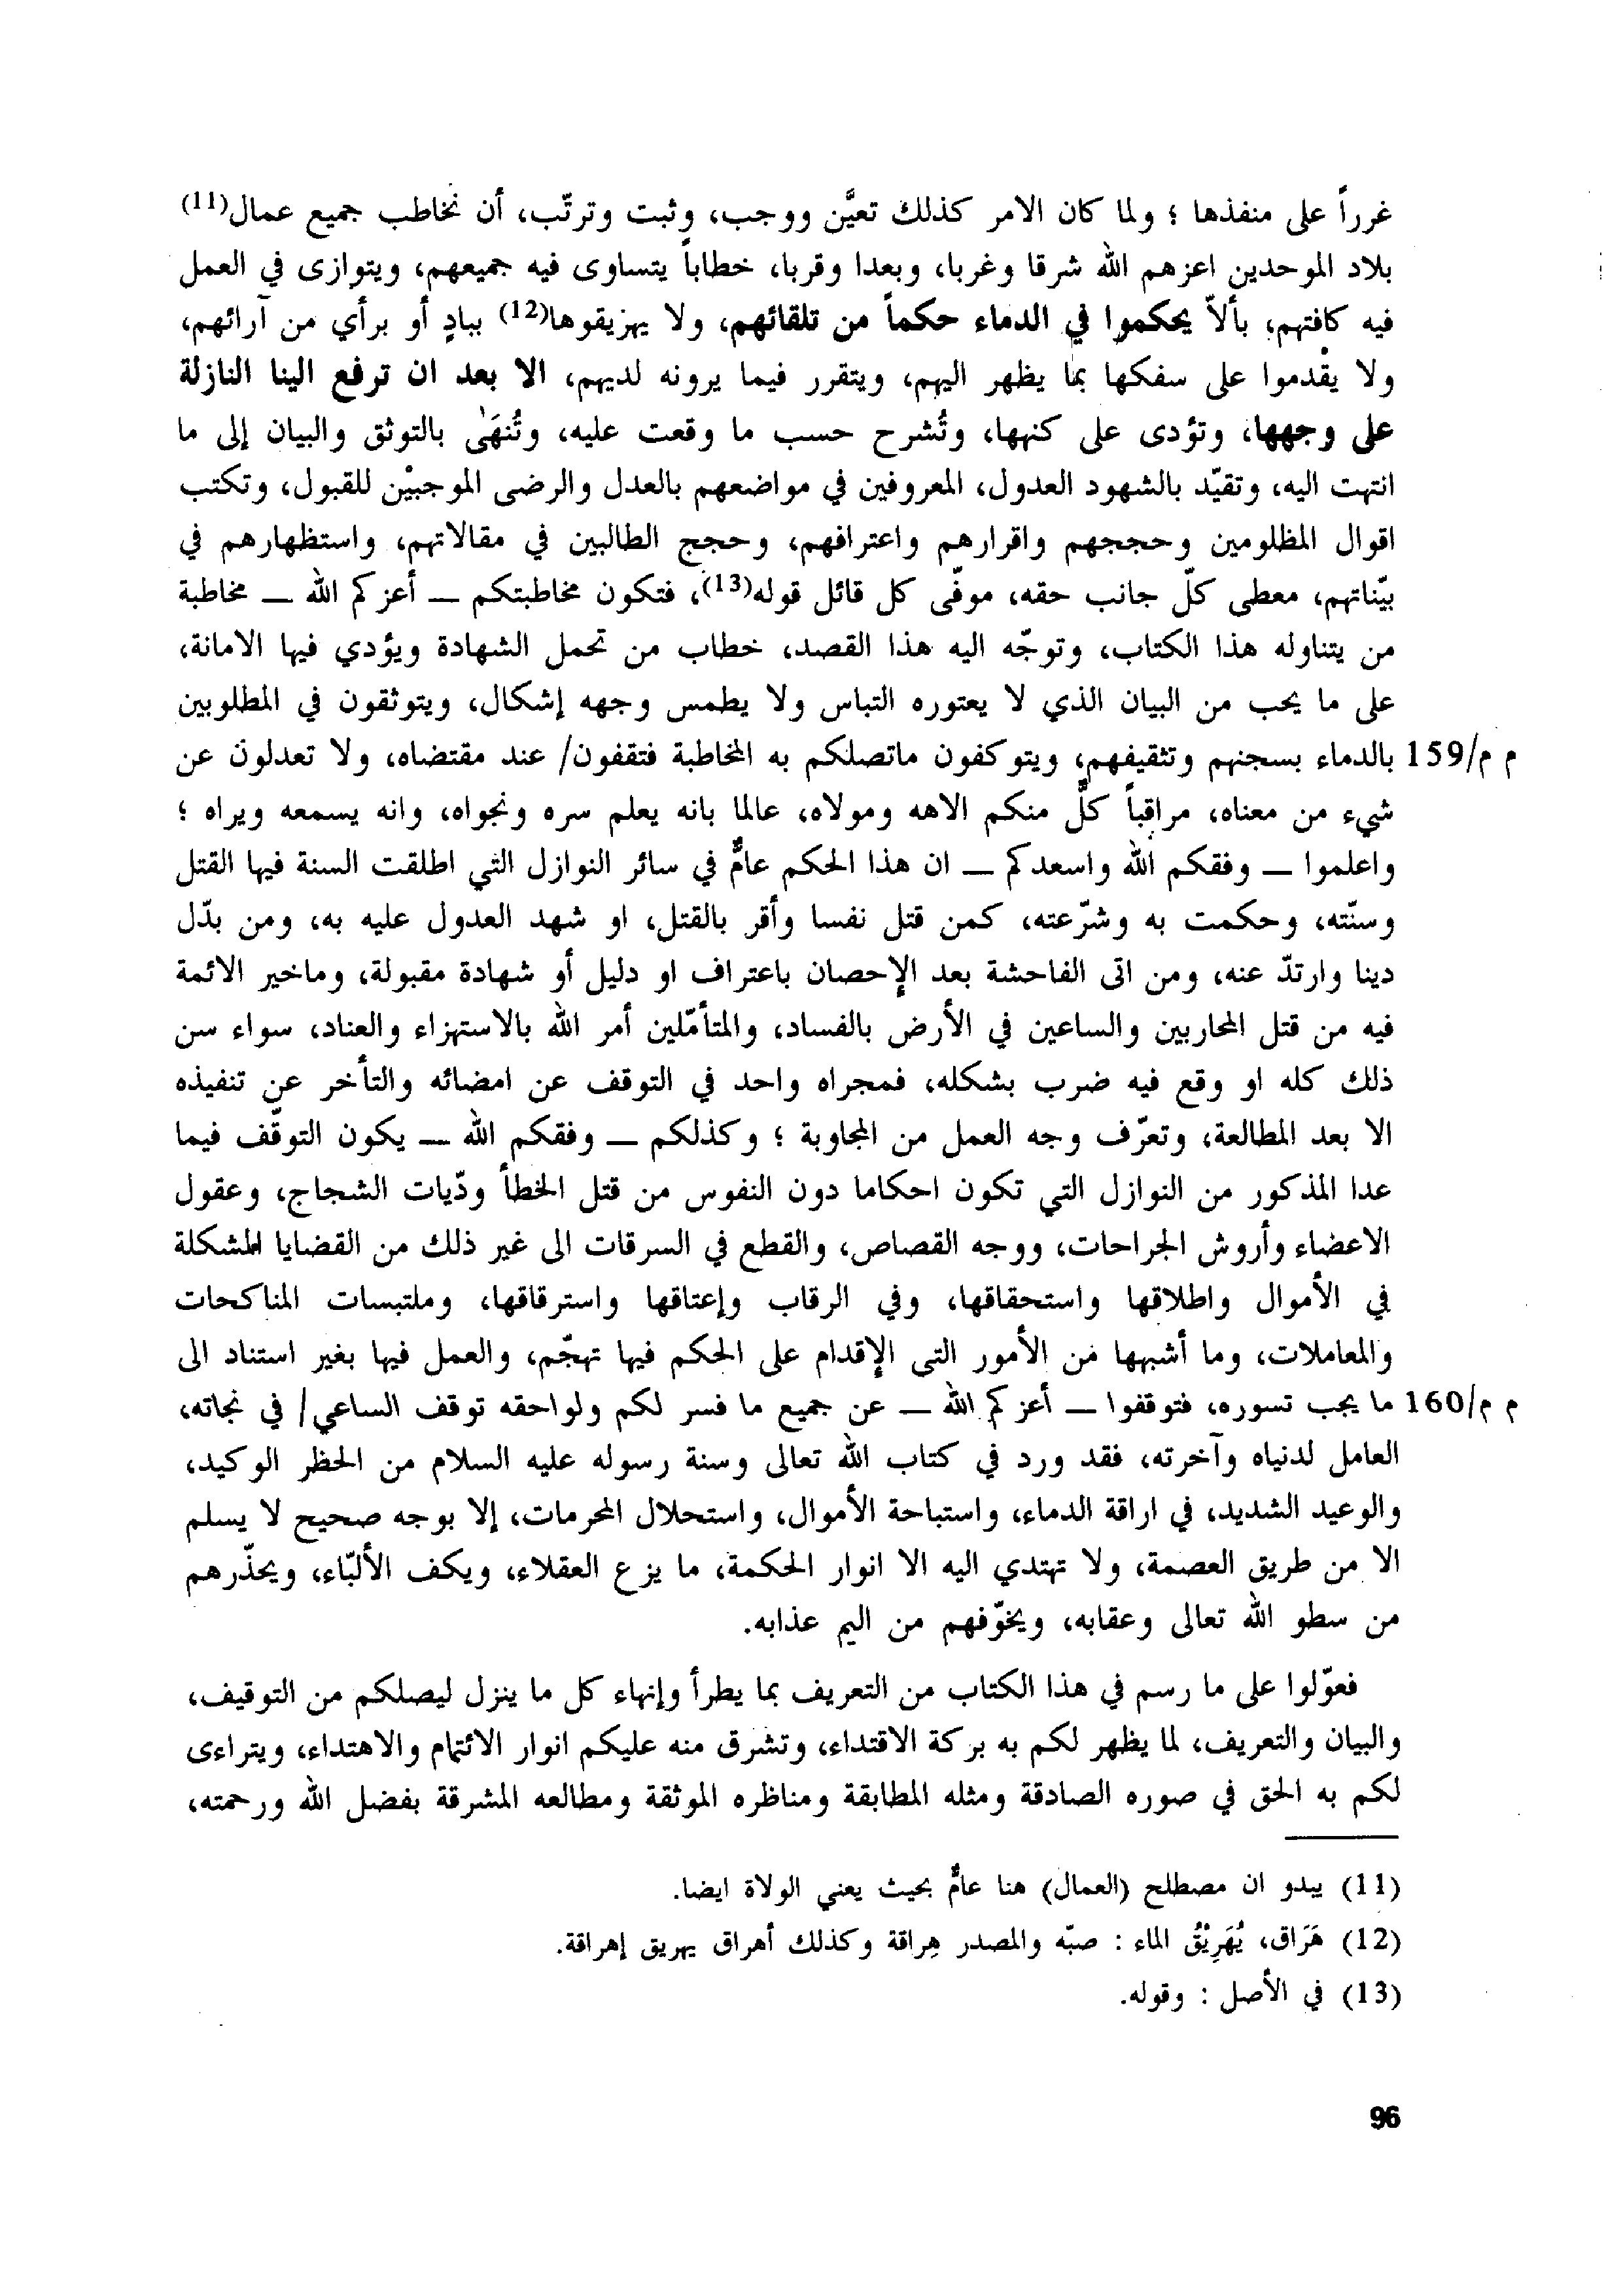 غرراً على منفذها ؛ ولما كان الامر كذلك تعيَّن ووجب، وثبت وترتّب، أن نخاطب جميع عمال(11)
بلاد الموحدين اعزهم الله شرقا وغربا، وبعدا وقربا، خطاباً يتساوى فيه جميعهم، ويتوازى في العمل
فيه كافتهم، بألاّ يحكموا في الدماء حكماً من تلقائهم، ولا يهزيقوها(12) ببادٍ أو برأي من آرائهم،
ولا يقْدموا على سفكها بما يظهر اليهم، ويتقرر فيما يرونه لديهم، الا بعد ان ترفع الينا النازلة
على وجهها، وتؤدى على كنهها، وتُشرح حسب ما وقعت عليه، وتُنهَىٰ بالتوثق والبيان إلى ما
انتهت اليه، وتقيّد بالشهود العدول، المعروفين في مواضعهم بالعدل والرضى الموجبيْن للقبول، وتكتب
اقوال المظلومين وحججهم واقرارهم واعترافهم، وحجج الطالبين في مقالاتهم، واستظهارهم في
بيّناتهم، معطى كلّ جانب حقه، موفّى كل قائل قوله(13)، فتكون مخاطبتكم — أعزكم الله — مخاطبة
من يتناوله هذا الكتاب، وتوجّه اليه هذا القصد، خطاب من تحمل الشهادة ويؤدي فيها الامانة،
على ما يحب من البيان الذي لا يعتوره التباس ولا يطمس وجهه إشكال، ويتوثقون في المطلوبين
م م/159 بالدماء بسجنهم وتثقيفهم، ويتوكفون ماتصلكم به المخاطبة فتقفون/ عند مقتضاه، ولا تعدلون عن
شيء من معناه، مراقباً كلٌّ منكم الاهه ومولاه، عالما بانه يعلم سره ونجواه، وانه يسمعه ويراه ؛
واعلموا — وفقكم الله واسعدكم — ان هذا الحكم عامٌّ في سائر النوازل التي اطلقت السنة فيها القتل
وسنّته، وحكمت به وشرّعته، كمن قتل نفسا وأقر بالقتل، او شهد العدول عليه به، ومن بدّل
دينا وارتدّ عنه، ومن اتى الفاحشة بعد الإحصان باعتراف او دليل أو شهادة مقبولة، وماخير الائمة
فيه من قتل المحاربين والساعين في الأرض بالفساد، والمتأمّلين أمر الله بالاستهزاء والعناد، سواء سن
ذلك كله او وقع فيه ضرب بشكله، فمجراه واحد في التوقف عن امضائه والتأخر عن تنفيذه
الا بعد المطالعة، وتعرّف وجه العمل من المجاوبة ؛ وكذلكم — وفقكم الله — يكون التوقّف فيما
عدا المذكور من النوازل التي تكون احكاما دون النفوس من قتل الخطأ ودّيات الشجاج، وعقول
الاعضاء وأروش الجراحات، ووجه القصاص، والقطع في السرقات الى غير ذلك من القضايا المشكلة
في الأموال واطلاقها واستحقاقها، وفي الرقاب وإعتاقها واسترقاقها، وملتبسات المناكحات
والمعاملات، وما أشبهها من الأمور التى الإقدام على الحكم فيها تهجّم، والعمل فيها بغير استناد الى
م م/160 ما يجب تسوره، فتوقفوا — أعزكم الله — عن جميع ما فسر لكم ولواحقه توقف الساعي/ في نجاته،
العامل لدنياه وآخرته، فقد ورد في كتاب الله تعالى وسنة رسوله عليه السلام من الحظر الوكيد،
والوعيد الشديد، في اراقة الدماء، واستباحة الأموال، واستحلال المحرمات، إلا بوجه صحيح لا يسلم
الا من طريق العصمة، ولا تهتدي اليه الا انوار الحكمة، ما يزع العقلاء، ويكف الألبّاء، ويحذّرهم
من سطو الله تعالى وعقابه، ويخوّفهم من اليم عذابه.
فعوّلوا على ما رسم في هذا الكتاب من التعريف بما يطرأ وإنهاء كل ما ينزل ليصلكم من التوقيف،
والبيان والتعريف، لما يظهر لكم به بركة الاقتداء، وتشرق منه عليكم انوار الائتمام والاهتداء، ويتراءى
لكم به الحق في صوره الصادقة ومثله المطابقة ومناظره الموثقة ومطالعه المشرقة بفضل الله ورحمته،
(11) يبدو ان مصطلح (العمال) هنا عامٌّ بحيث يعني الولاة ايضا.
(12) هَرَاق، يُهَرِيْقُ الماء : صبّه والمصدر هِراقة وكذلك أهراق يهريق إهراقة.
(13) في الأصل : وقوله.
96